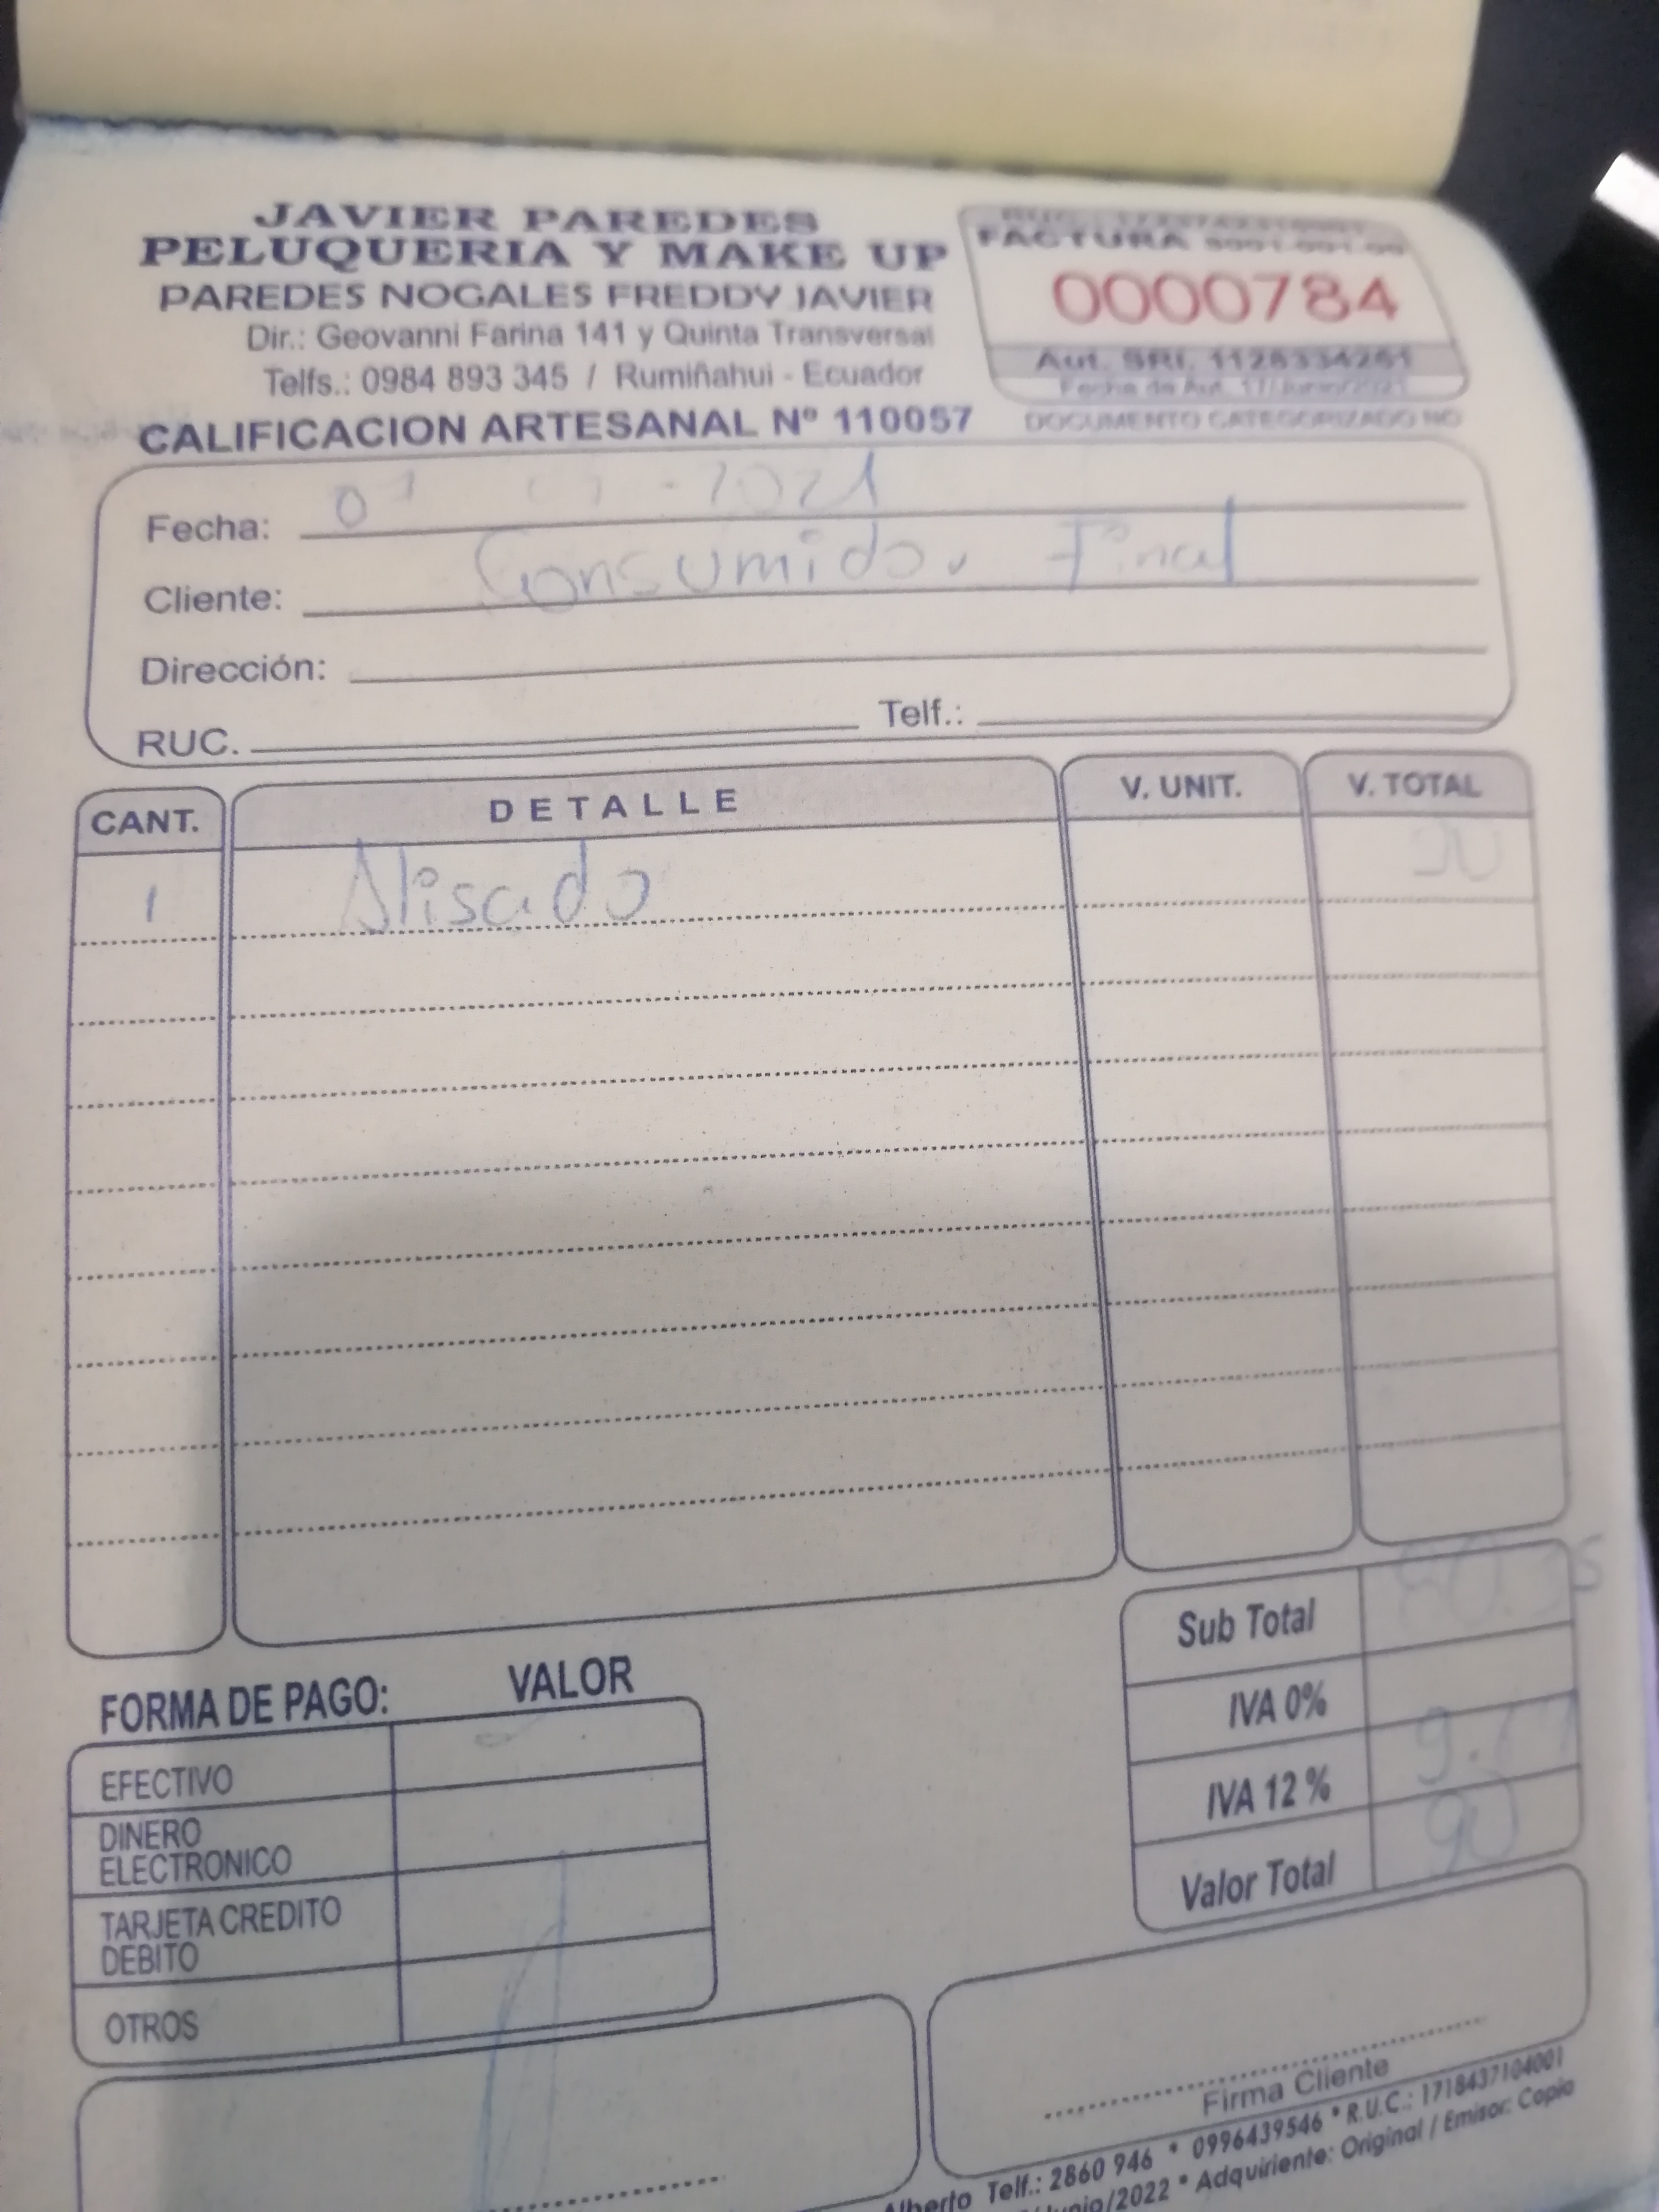 JAVIER PAREDES
PELUQUERIA Y MAKE UP
PAREDES NOGALES FREDDY JAVIER
Dir.: Geovanni Farina 141 y Quinta Transversal
Telfs.: 0984 893 345 / Rumiñahui - Ecuador
CALIFICACION ARTESANAL Nº 110057
FACTURA
0000784
Aut. SRI. 1128334261
Fecha de Aut. 17/Junio/2021
DOCUMENTO CATEGORIZADO NO
Fecha: 2021
Cliente: Consumidor Final
Dirección:
RUC. Telf.:
CANT. DETALLE V. UNIT. V. TOTAL
1 Alisado
Sub Total
IVA 0%
IVA 12 %
Valor Total 90
FORMA DE PAGO: VALOR
EFECTIVO
DINERO
ELECTRONICO
TARJETA CREDITO
DEBITO
OTROS
Firma Cliente
Alberto Telf.: 2860 946 * 0996439546 * R.U.C.: 1718437104001
Junio/2022 * Adquiriente: Original / Emisor: Copia